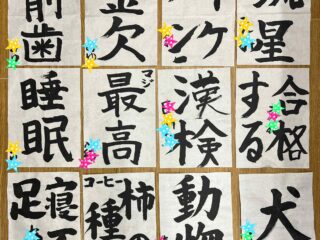 前歯
欠
ケン
星
睡眠
マジ
最高
漢検
合格
する
足
寝
コーヒー
種
柿の
動物
犬